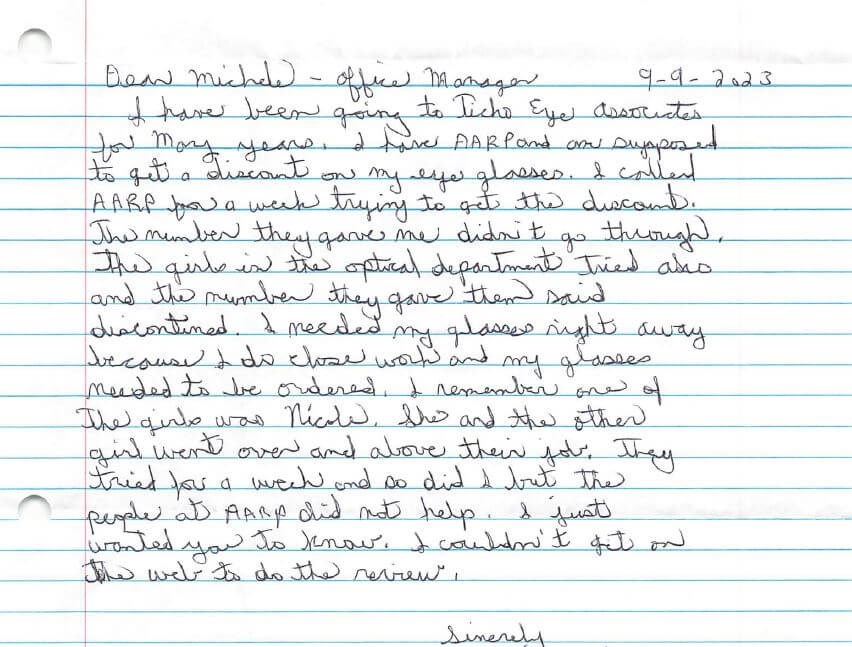 Dear Michele - Office Manager 9-9-2023
I have been going to Ticho Eye Associates
for many years. I have AARP and am supposed
to get a discount on my eye glasses. I called
AARP for a week trying to get the discount.
The number they gave me didn't go through.
The girls in the optical department tried also
and the number they gave them said
discontined. I needed my glasses right away
because I do close work and my glasses
needed to be ordered. I remember one of
the girls was Nicole. She and the other
girl went over and above their job. They
tried for a week and so did I but the
people at AARP did not help. I just
wanted you to know. I couldn't get on
the web to do the review.
Sinerely